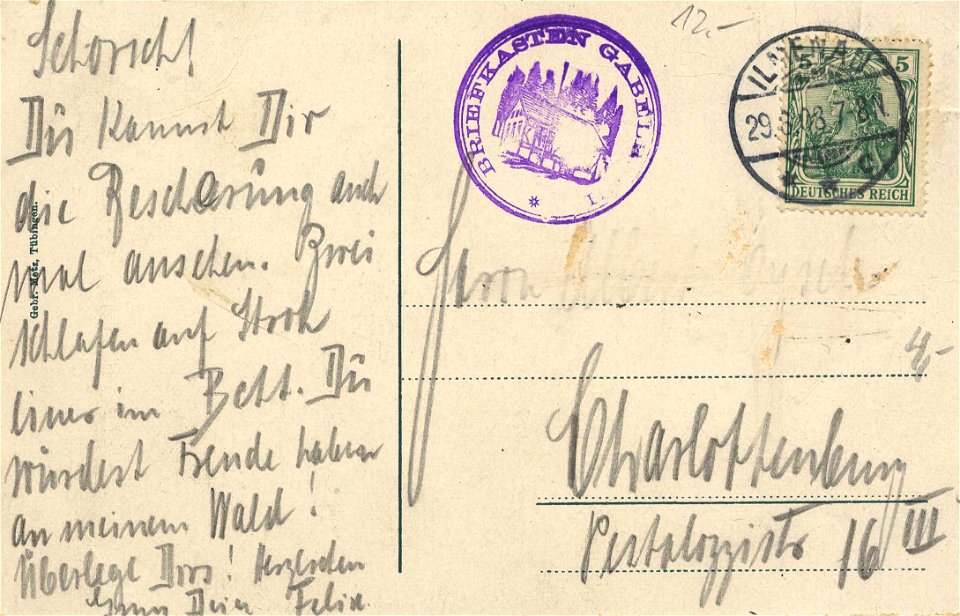 Schorsch!
Du kannst Dir
die Bescherung auch
mal ansehen. Zwei
schlafen auf Stroh
einer im Bett. Du
würdest Freude haben
an meinem Wald!
Überlege Dirs! Herzlichen
Gruss Dein Felix.
Gebr. Metz, Tübingen.
BRIEFKASTEN GABELB
12.-
ILMENAU
29. 08. 7-8 N.
* c
5 5
DEUTSCHES REICH
Herrn
4,-
Charlottenburg
Pestalozzistr 16 III